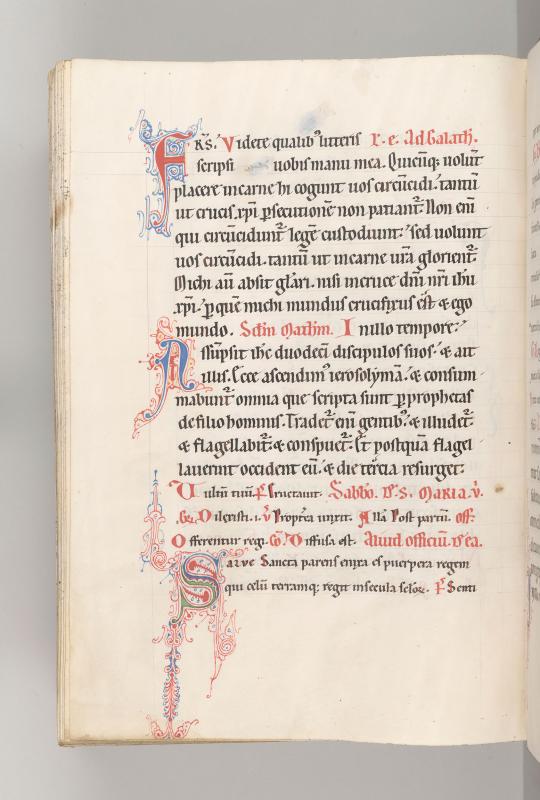 FRS. Videte qualib' litteris r. e. Ad Galath.
scripsi uobis manu mea. Quicūq; uolūt
placere in carne hi cogunt uos circūcidi. tantū
ut crucis xpi psecutionē non patiant. Non eni
qui circūcidunt legē custodiunt. sed uolunt
uos circūcidi. tantū ut in carne urā glorient.
Michi aū absit glari. nisi in cruce dni nri ihu
xpi. p quē michi mundus crucifixus est & ego
mundo. Scdm Mathm. In illo tempore.
Assūpsit ihc duodeci discipulos suos. & ait
illis. Ecce ascendim' ierosolýmā. & consum
mabunt omnia que scripta sunt p prophetas
de filio hominis. Tradet eni gentib'. & illudet.
& flagellabit. & conspuet. Et postquā flagel
lauerint occident eū. & die tercia resurget.
Uultū tuū. Ps Eructauit. Sabbo. De S. Maria. v.
Gr. Dilexisti. v Propterea unxit. Alla Post partū. off.
Offerentur regi. Co. Diffusa est. Aliud officiū de ea.
Salue Sancta parens enixa es puerpera regem
qui celū terramq; regit in secula sclor. Ps Senti